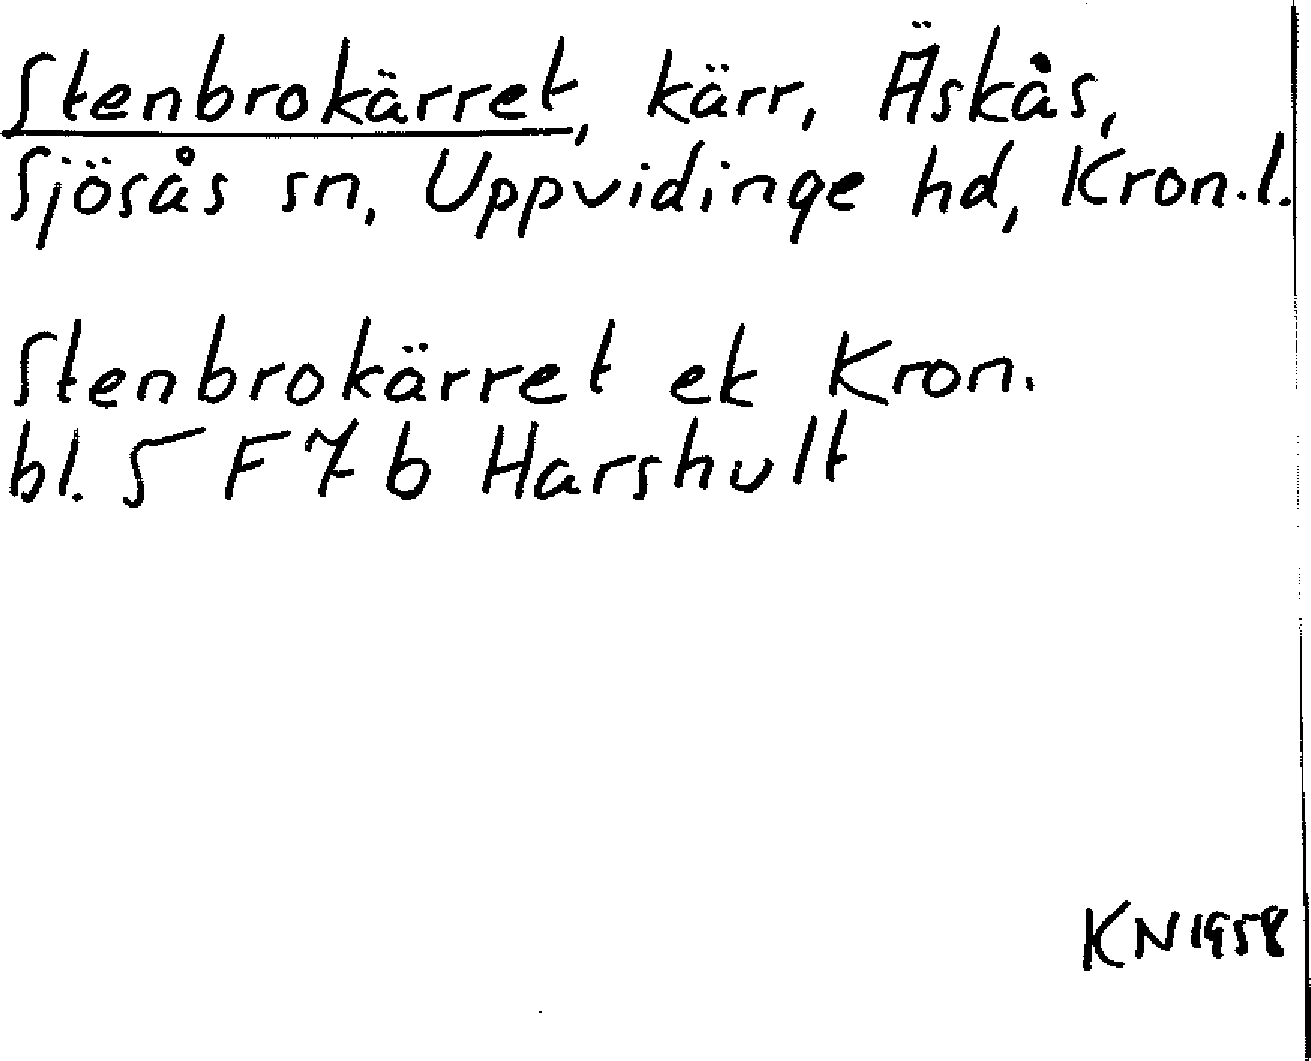 Stenbrokärret, kärr, Äskås,
Sjösås sn, Uppvidinge hd, Kron.l.
Stenbrokärret ek Kron.
bl. 5 F 7 b Harshult
KN 1958